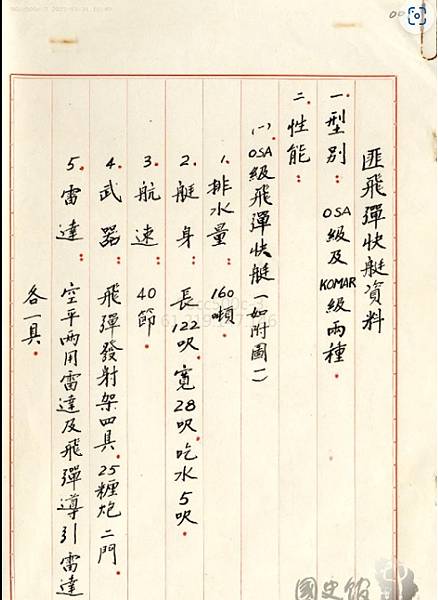 匪飛彈快艇資料
一.型別：OSA級及KOMAR級兩種.
二.性能：
(一)OSA級飛彈快艇(如附圖一)
1.排水量：160噸
2.艇身：長122呎.寬28呎.吃水5呎.
3.航速：40節.
4.武器：飛彈發射架四具.25糎炮二門.
5.雷達：空平兩用雷達及飛彈導引雷達
各一具.
國史館